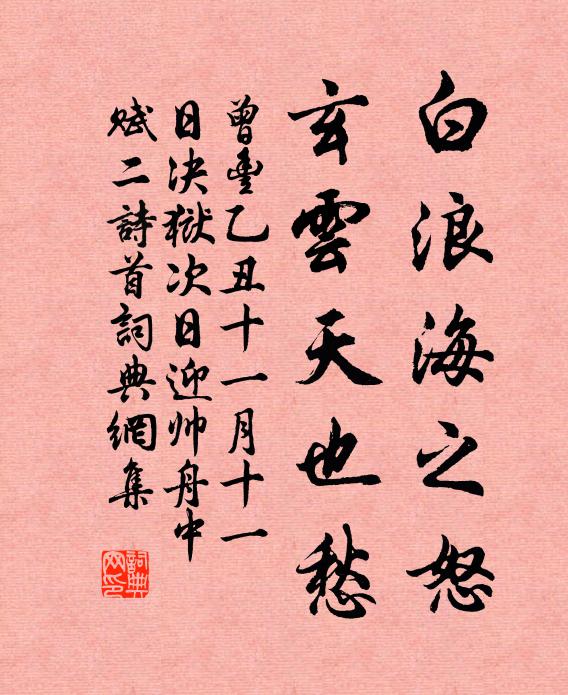 白浪海之怒
玄雲天也愁
曾豊乙丑十一月十一
日决獄次日迎帅舟中
賦二詩首詞典網集
詞典
网印